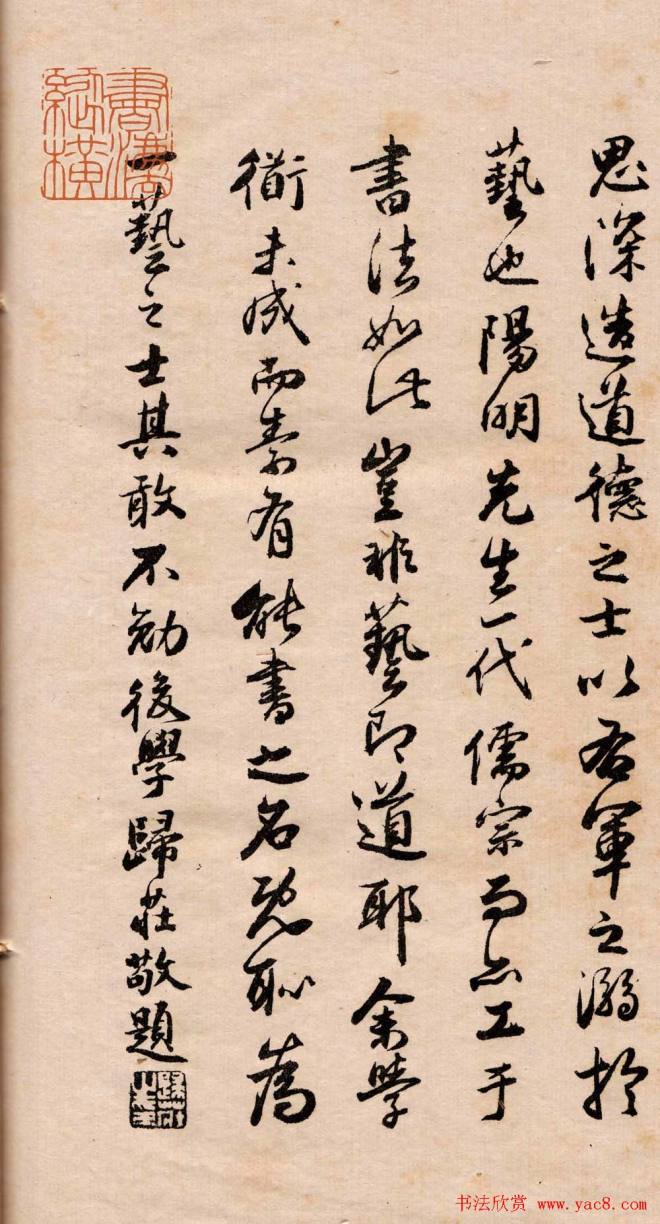 思深造道德之士以右軍之溺於
藝也陽明先生一代儒宗而亦工于
書法如此豈非藝即道耶余學
術未成而素有能書之名既恥為
一藝之士其敢不勉後學歸莊敬題
书法欣赏 www.yac8.com